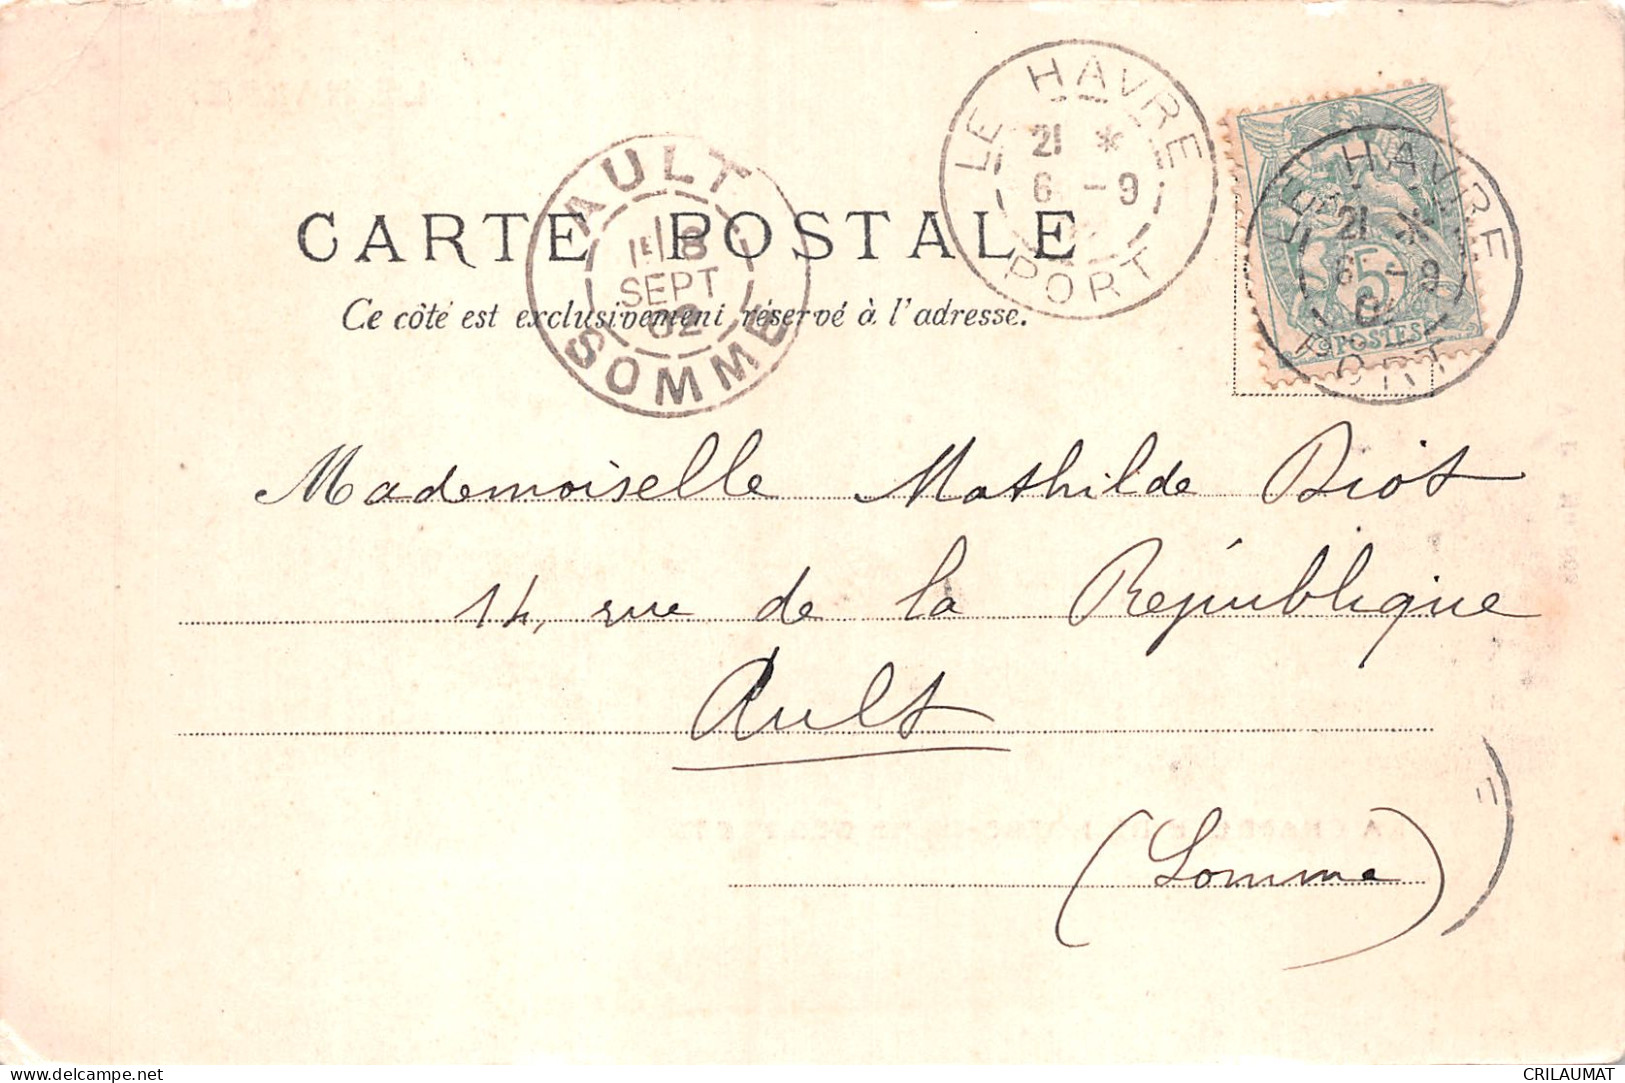 LE HAVRE
21 *
6 -9
PORT
LE HAVRE
21 *
6 -9
02
PORT
5
POSTES
AULT
8
SEPT
02
SOMME
CARTE POSTALE
Ce côté est exclusivement réservé à l'adresse.
Mademoiselle Mathilde Biot
14, rue de la République
Ault
(Somme)
CRILAUMAT